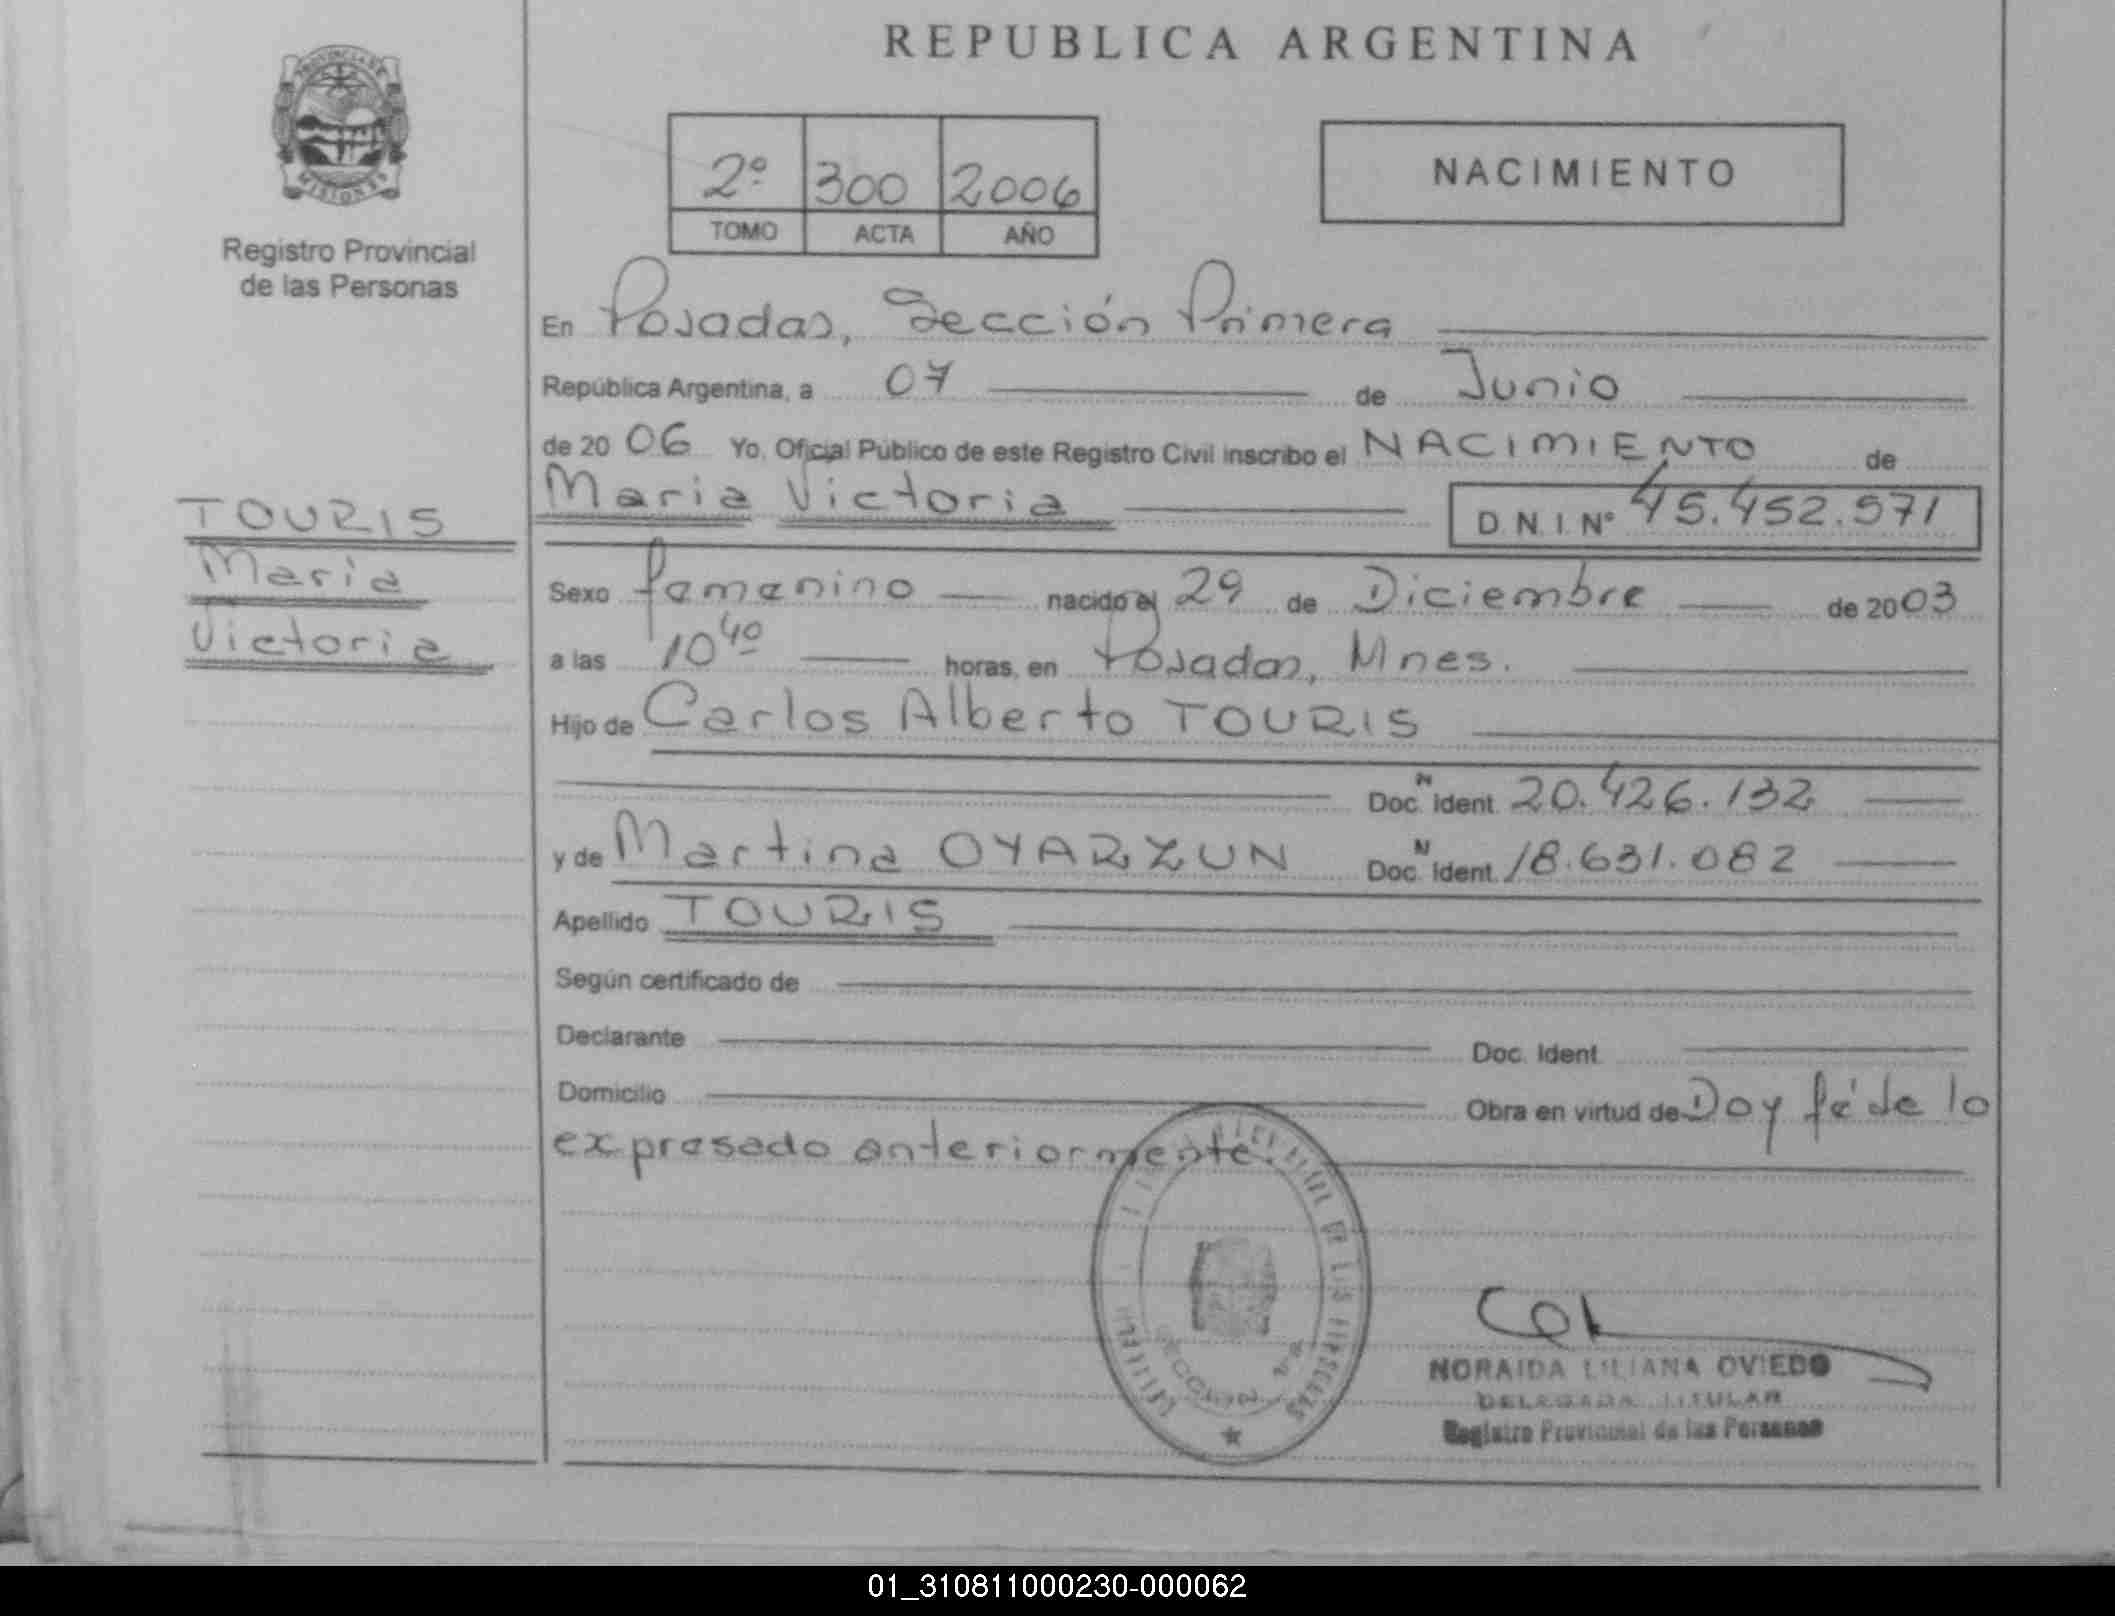 REPUBLICA ARGENTINA
PROVINCIA DE
MISIONES
Registro Provincial
de las Personas
2º 300 2006
TOMO ACTA AÑO
NACIMIENTO
En Posadas, Sección Primera
República Argentina, a 07 de Junio
de 20 06 Yo, Oficial Público de este Registro Civil inscribo el NACIMIENTO de
Maria Victoria D.N.I. Nº 45.452.571
TOURIS
Maria
Victoria
Sexo femenino nacido el 29 de Diciembre de 20 03
a las 10 40 horas, en Posadas, Mnes.
Hijo de Carlos Alberto TOURIS
Doc. Ident. 20.426.132
y de Martina OYARZUN Doc. Ident. 18.631.082
Apellido TOURIS
Según certificado de
Declarante Doc. Ident.
Domicilio Obra en virtud de Doy fé de lo
expresado anteriormente.
DE LAS PERSONAS
SECCION 1ra
NORAIDA LILIANA OVIEDO
DELEGADA TITULAR
Registro Provincial de las Personas
01_310811000230-000062